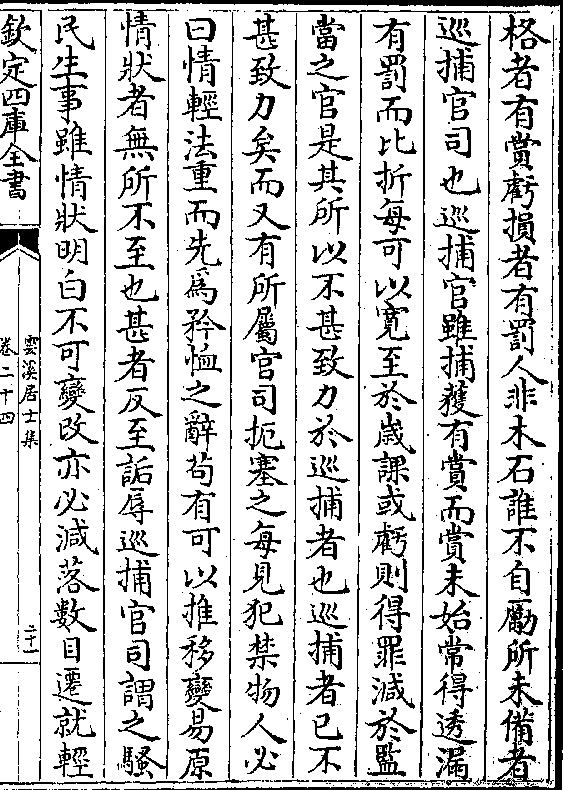 格者有賞虧損者有罰人非木石誰不自勵所未備者
巡捕官司也巡捕官雖捕獲有賞而賞未始常得透漏
有罰而比折每可以寛至於歳課或虧則得罪減於監
當之官是其所以不甚致力於巡捕者也巡捕者已不
甚致力矣而又有所屬官司扼塞之每見犯禁物人必
曰情輕法重而先為矜恤之辭苟有可以推移變易原
情狀者無所不至也甚者反至詬辱巡捕官司謂之騷
民生事雖情狀明白不可變改亦必減落數目遷就輕
欽定四庫全書
雲溪居士集
卷二十四
二十一